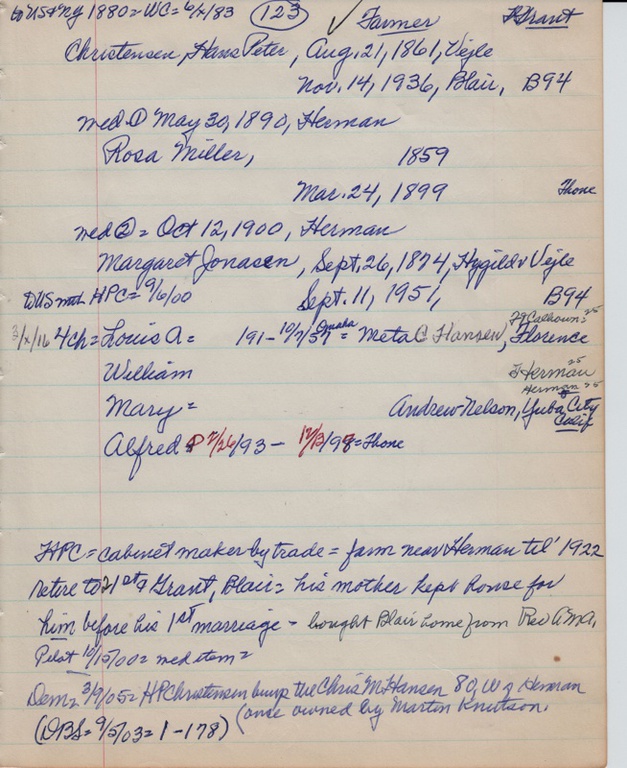 to US & Ny 1880 = WC = 6/x/83 (123) ✓ Farmer Grant
Christensen, Hans Peter, Aug. 21, 1861, Vejle
Nov. 14, 1936, Blair, B94
wed ① May 30, 1890, Herman
Rosa Miller, 1859
Mar. 24, 1899 Thone
wed ② = Oct 12, 1900, Herman
Margaret Jonasen, Sept. 26, 1874, Hygild v Vejle
to US with HPC = 9/6/00 Sept. 11, 1951, B94
Ft Calhoun = 25
3/x/16 4ch = Louis A = 191 - 10/7/57 Omaha = Meta C Hansen, Florence
William Herman 25
Herman 25
Mary = Andrew Nelson, Yuba City
Calif
Alfred 2/26/93 - 12/3/98 = Thone
HPC = cabinet maker by trade = farm near Herman til' 1922
retire to 21st & Grant, Blair = his mother kept house for
him before his 1st marriage - bought Blair home from Rev AMA,
Pilot 10/15/00 = wed item =
Dem = 3/9/05 = HPChristensen buys the Chris M. Hansen 80, W of Herman
(once owned by Martin Knutson.
(DBS = 9/5/03 = 1-178)